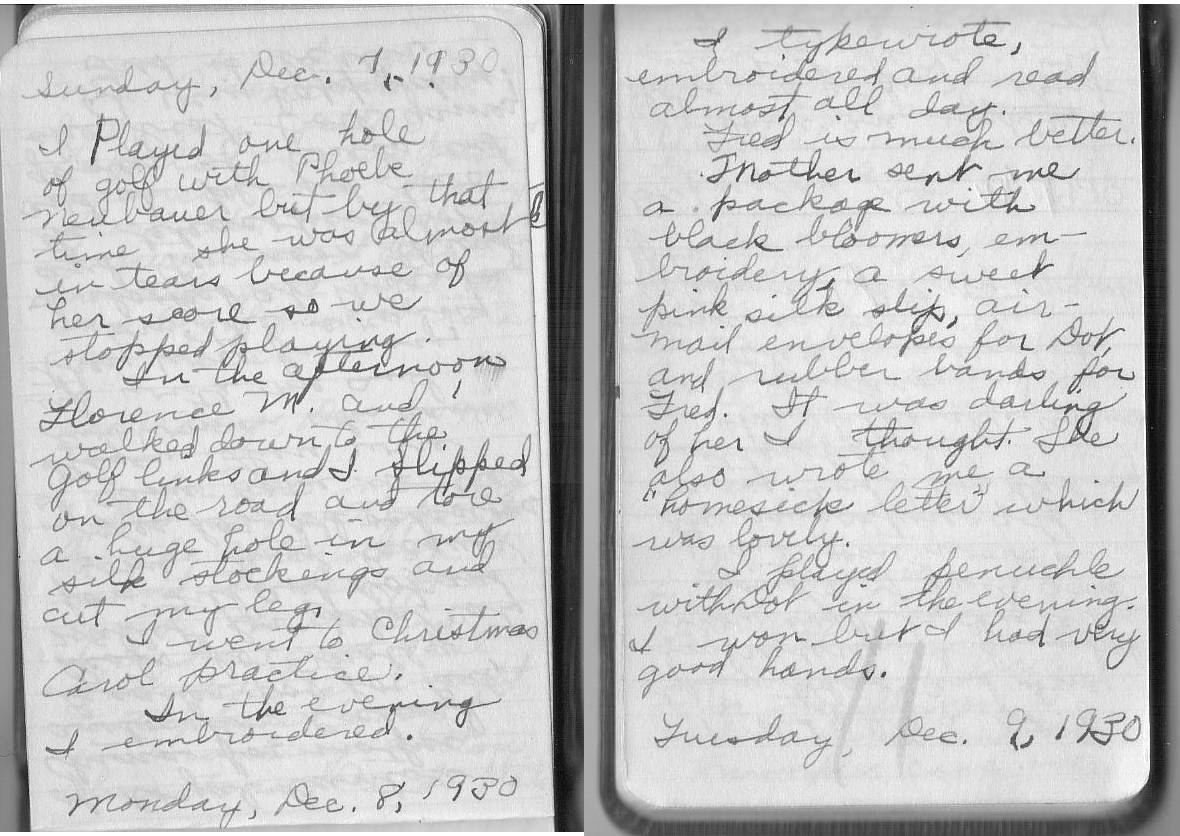 Sunday, Dec. 7, 1930
I Played one hole
of golf with Phoebe
Neubauer but by that
time she was almost
in tears because of
her score so we
stopped playing.
In the afternoon
Florence M. and I
walked down to the
Golf links and I slipped
on the road and tore
a huge hole in my
silk stockings and
cut my leg.
I went to Christmas
Carol practice.
In the evening
I embroidered.
Monday, Dec. 8, 1930
I typewrote,
embroidered and read
almost all day.
Fred is much better.
Mother sent me
a package with
black bloomers, em-
broidery, a sweet
pink silk slip, air-
mail envelopes for Dot,
and rubber bands for
Fred. It was darling
of her I thought. She
also wrote me a
"homesick letter" which
was lovely.
I played penuchle
with Dot in the evening.
I won but I had very
good hands.
Tuesday, Dec. 9, 1930